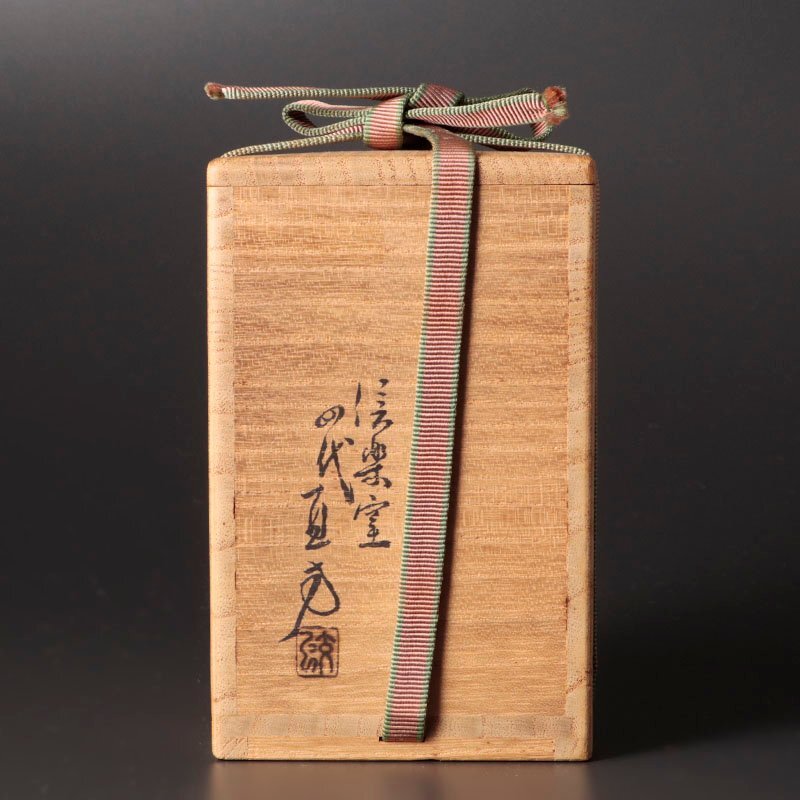 信楽窯
四代直方